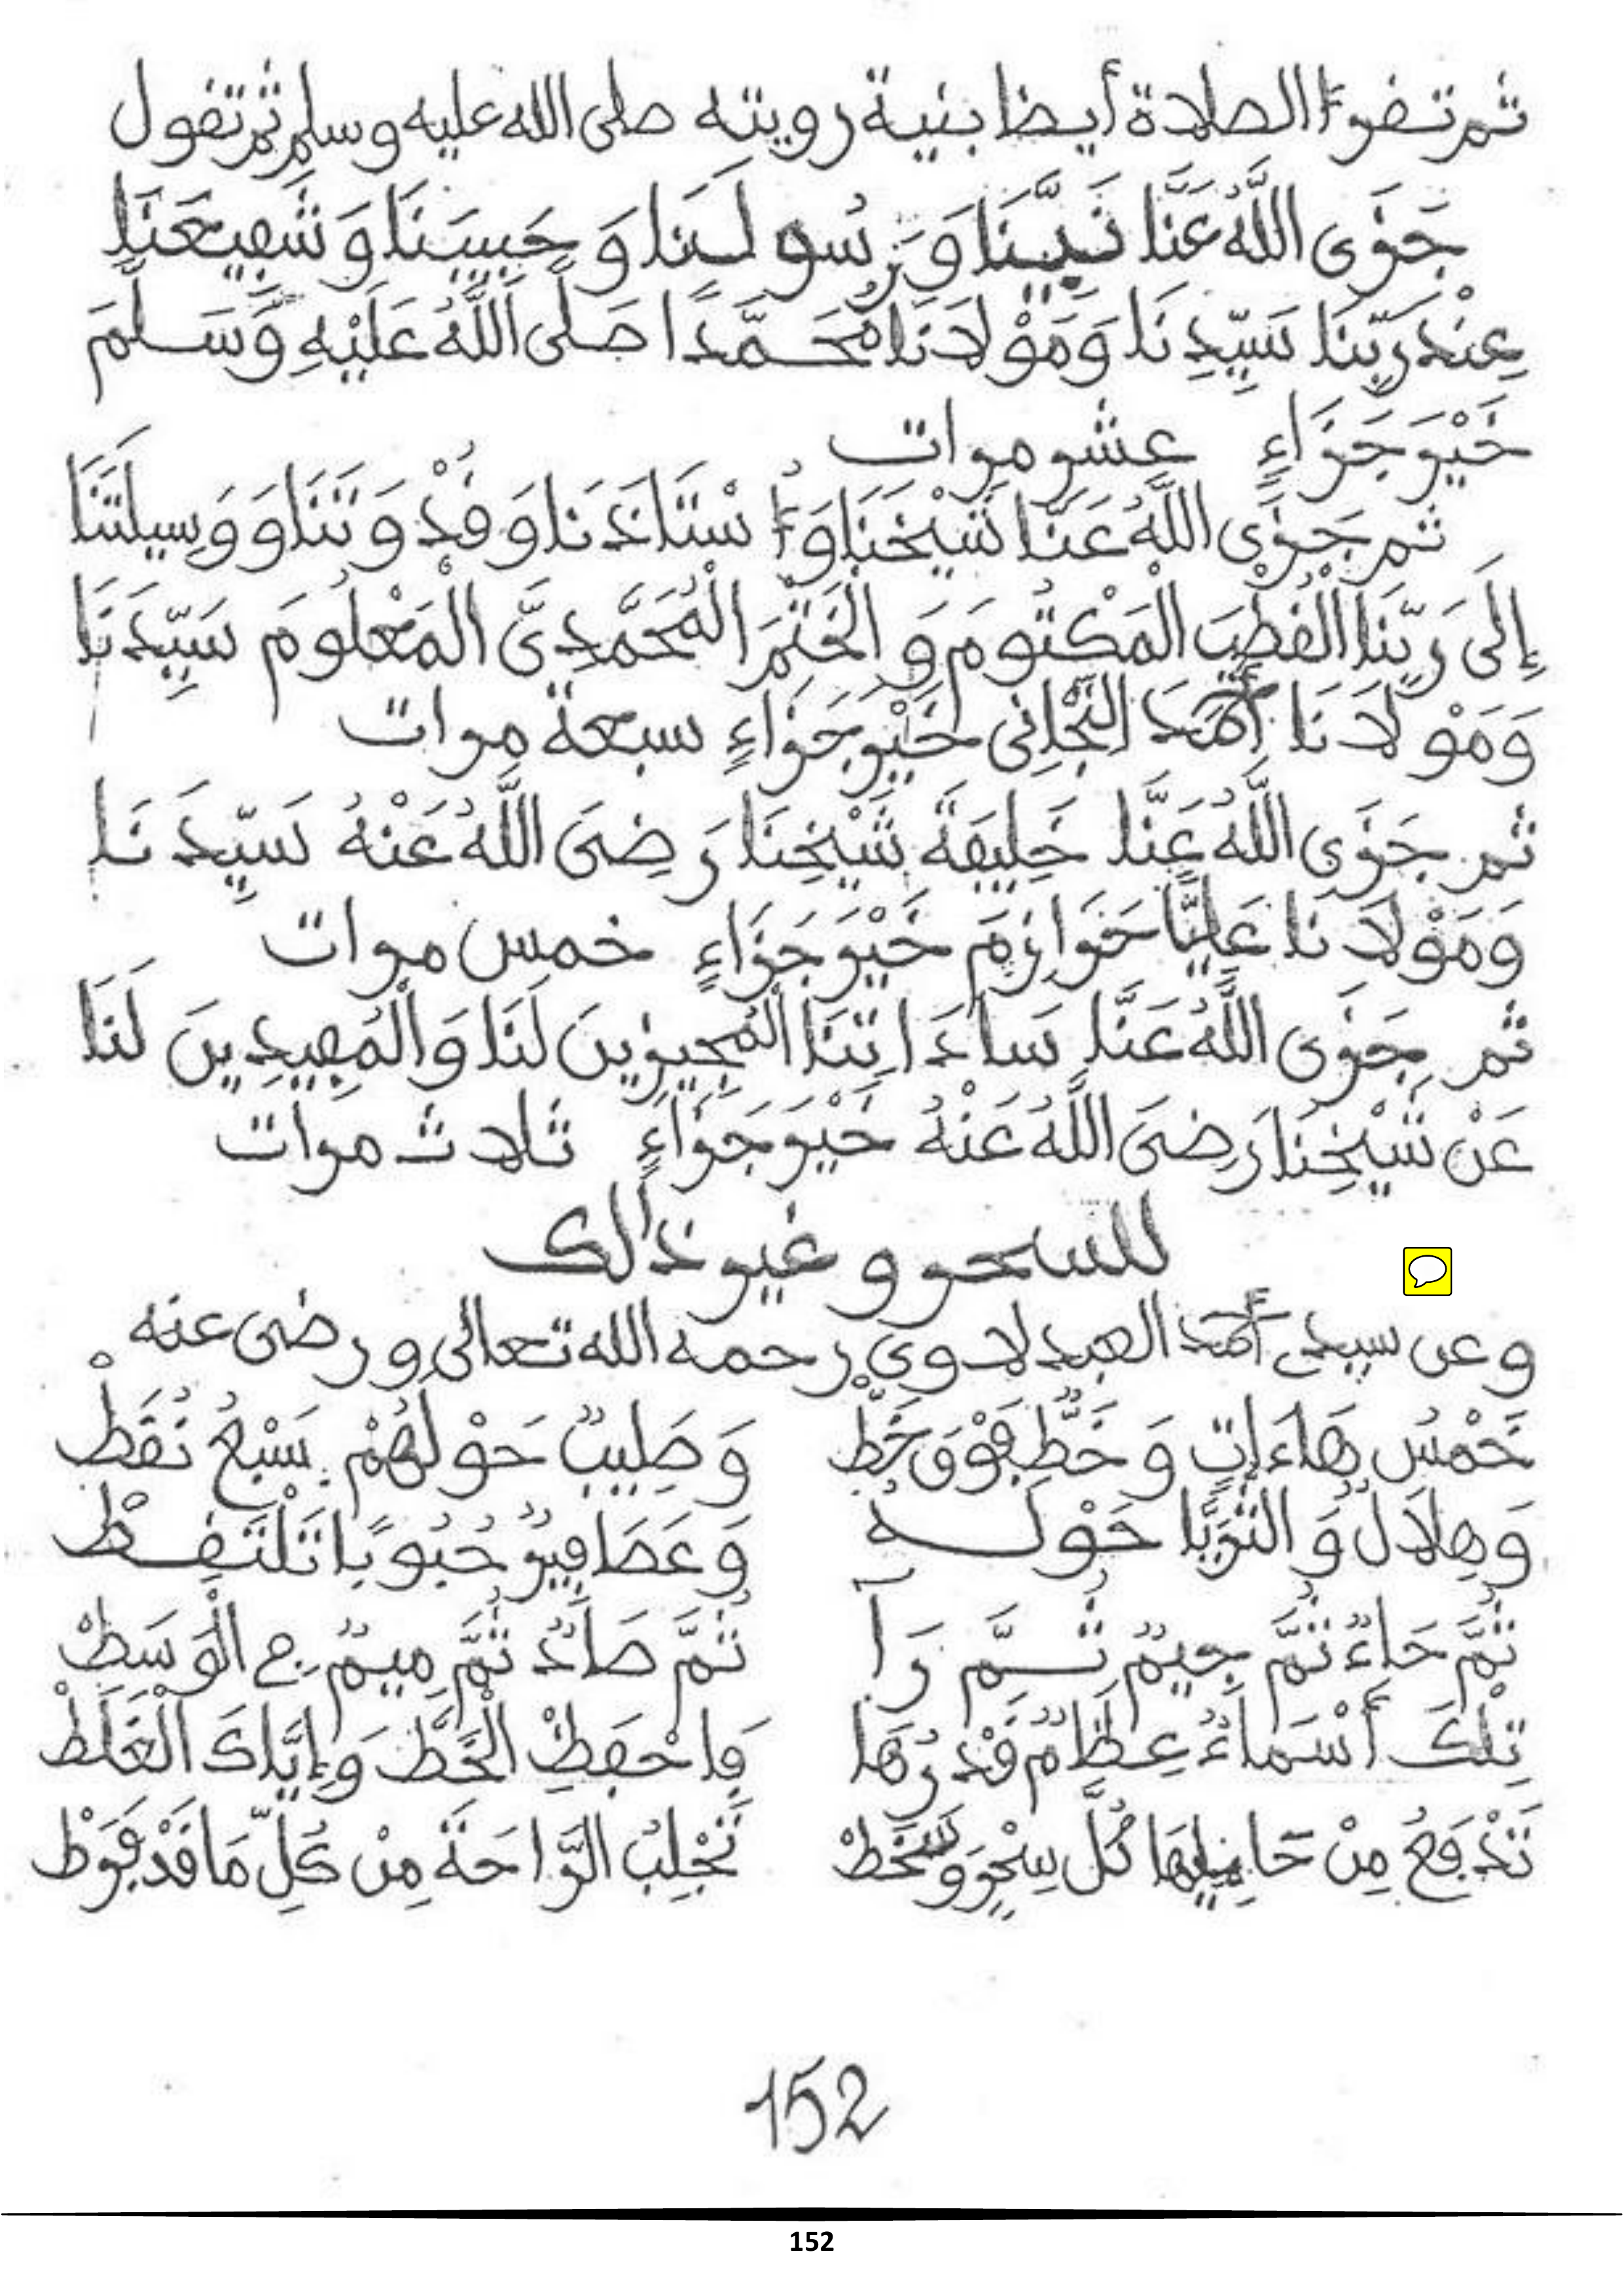 ثم تقرأ الصلاة أيضا بنية رويته صلى الله عليه وسلم ثم تقول
جَزَى اللَّهُ عَنَّا نَبِيَّنَا وَرَسُولَنَا وَحَبِيبَنَا وَشَفِيعَنَا
عِنْدَ رَبِّنَا سَيِّدِنَا وَمَوْلَانَا مُحَمَّدًا صَلَّى اللَّهُ عَلَيْهِ وَسَلَّمَ
خَيْرَ جَزَاءٍ عشر مرات
ثم جَزَى اللَّهُ عَنَّا شَيْخَنَا وَأُسْتَاذَنَا وَقُدْوَتَنَا وَوَسِيلَتَنَا
إِلَى رَبِّنَا الْقُطْبَ الْمَكْتُومَ وَالْخَتْمَ الْمُحَمَّدِيَّ الْمَعْلُومَ سَيِّدَنَا
وَمَوْلَانَا أَحْمَدَ التِّجَانِى خَيْرَ جَزَاءٍ سبعة مرات
ثم جَزَى اللَّهُ عَنَّا خَلِيفَةَ شَيْخِنَا رَضِىَ اللَّهُ عَنْهُ سَيِّدَنَا
وَمَوْلَانَا عَلِيًّا حَرَازِمَ خَيْرَ جَزَاءٍ خمس مرات
ثم جَزَى اللَّهُ عَنَّا سَادَاتِنَا الْمُجِيزِينَ لَنَا وَالْمُفِيدِينَ لَنَا
عَنْ شَيْخِنَا رَضِىَ اللَّهُ عَنْهُ خَيْرَ جَزَاءٍ ثلاث مرات
للسحر و غير ذالك
وعن سيدي أحمد العبدلاوي رحمه الله تعالى ورضى عنه
خَمْسُ هَاءَاتٍ وَخَطٌّ فَوْقَ خَطّْ وَصَلِيبٌ حَوْلَهُمْ سَبْعُ نُقَطْ
وَهِلَالٌ وَالثُّرَيَّا حَوْلَهُ وَعَصَافِيرٌ حُبُوبًا تَلْتَقِطْ
ثُمَّ حَاءٌ ثُمَّ جِيمٌ ثُمَّ رَآ ثُمَّ صَادٌ ثُمَّ مِيمٌ فِى الْوَسَطْ
تِلْكَ أَسْمَاءٌ عِظَامٌ قَدْرُهَا فَاحْفَظِ الْخَطَّ وَإِيَّاكَ الْغَلَطْ
تَدْفَعُ مِنْ حَامِلِهَا كُلَّ سِحْرٍ وَسَخَطْ تَجْلِبُ الرَّاحَةَ مِنْ كُلِّ مَا قَدْ فَرَطْ
152
152